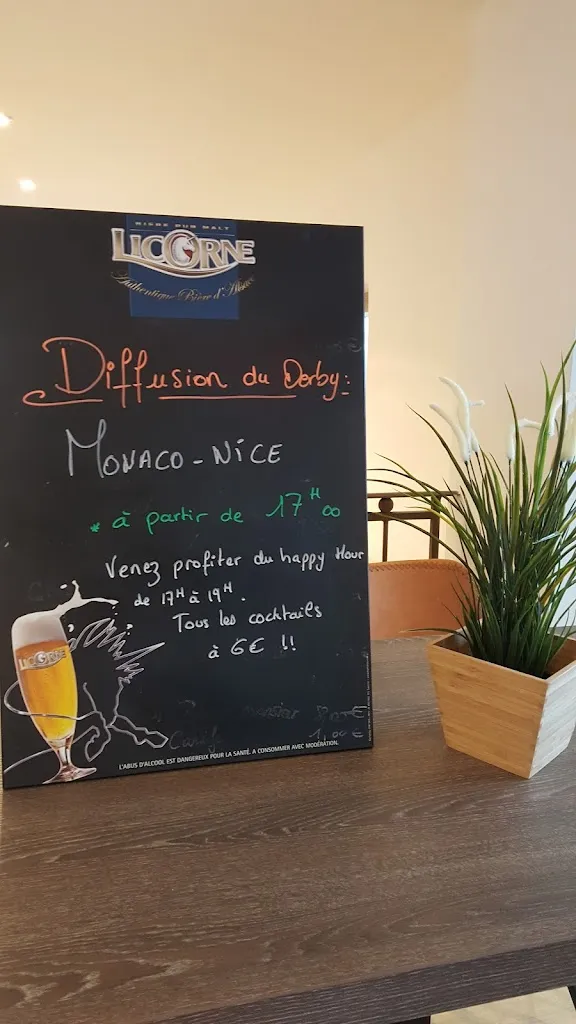 BIÈRE PUR MALT
LICORNE
Authentique Bière d'Alsace
Diffusion du Derby:
MONACO - NICE
* à partir de 17H00
Venez profiter du happy Hour
de 17H à 19H.
Tous les cocktails
à 6€ !!
LICORNE
1,00€
L'ABUS D'ALCOOL EST DANGEREUX POUR LA SANTÉ. A CONSOMMER AVEC MODÉRATION.